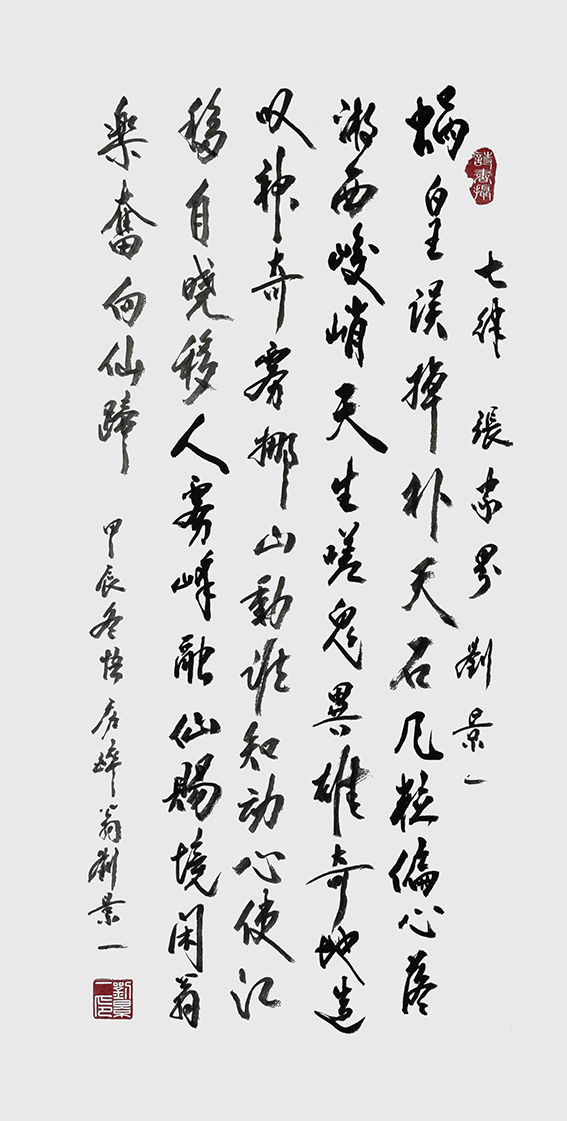 七律 張家界 劉景一
蜗皇误掉补天石几粒偏心落
湘西峻峭天生嗟鬼異雄奇地造
叹神奇雾挪山動谁知动心使江
移自晓移人雾峰融仙赐境闲翁
樂奮向仙蹄 甲辰冬悟醉翁劉景一
劉景一印